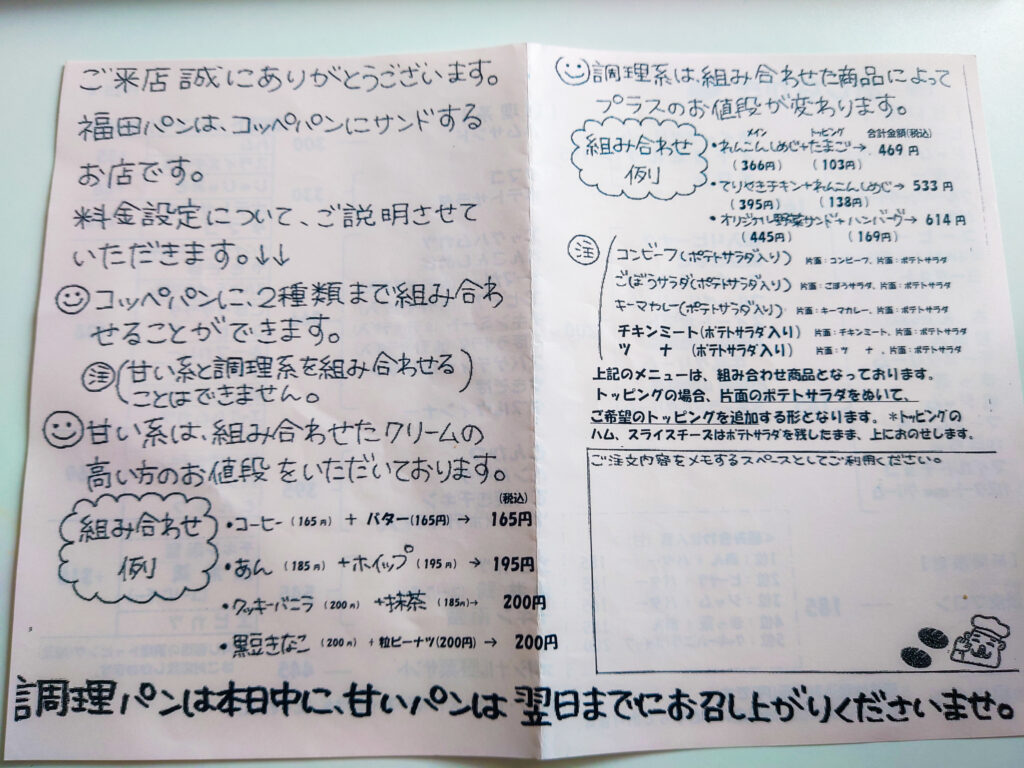 ご来店 誠にありがとうございます。
福田パンは、コッペパンにサンドする
お店です。
*料金設定について、ご説明させて
いただきます。↓↓
コッペパンに、2種類まで組み合わ
せることができます。
注 (甘い系と調理系を組み合わせる
ことはできません。)
甘い系は、組み合わせたクリームの
高い方のお値段をいただいております。
組み合わせ
例
(税込)
・コーヒー(165円) + バター(165円) → 165円
・あん (185円) +ホイップ (195円) → 195円
・クッキーバニラ (200円) +抹茶 (185円)→ 200円
・黒豆きなこ (200円) + 粒ピーナツ(200円) → 200円
調理系は、組み合わせた商品によって
プラスのお値段が変わります。
組み合わせ
例
メイン トッピング 合計金額(税込)
・れんこんしめじ+たまご→ 469円
(366円) (103円)
・てりやきチキン+れんこんしめじ→ 533円
(395円) (138円)
・オリジナル野菜サンド+ハンバーグ→ 614円
(445円) (169円)
注
コンビーフ(ポテトサラダ入り) 片面:コンビーフ、片面:ポテトサラダ
ごぼうサラダ(ポテトサラダ入り) 片面:ごぼうサラダ、片面:ポテトサラダ
キーマカレー(ポテトサラダ入り) 片面:キーマカレー、片面:ポテトサラダ
チキンミート(ポテトサラダ入り) 片面:チキンミート、片面:ポテトサラダ
ツ ナ (ポテトサラダ入り) 片面:ツ ナ 、片面:ポテトサラダ
上記のメニューは、組み合わせ商品となっております。
トッピングの場合、片面のポテトサラダをぬいて、
ご希望のトッピングを追加する形となります。*トッピングの
ハム、スライスチーズはポテトサラダを残したまま、上におのせします。
ご注文内容をメモするスペースとしてご利用ください。
調理パンは本日中に、甘いパンは 翌日までにお召し上がりくださいませ。